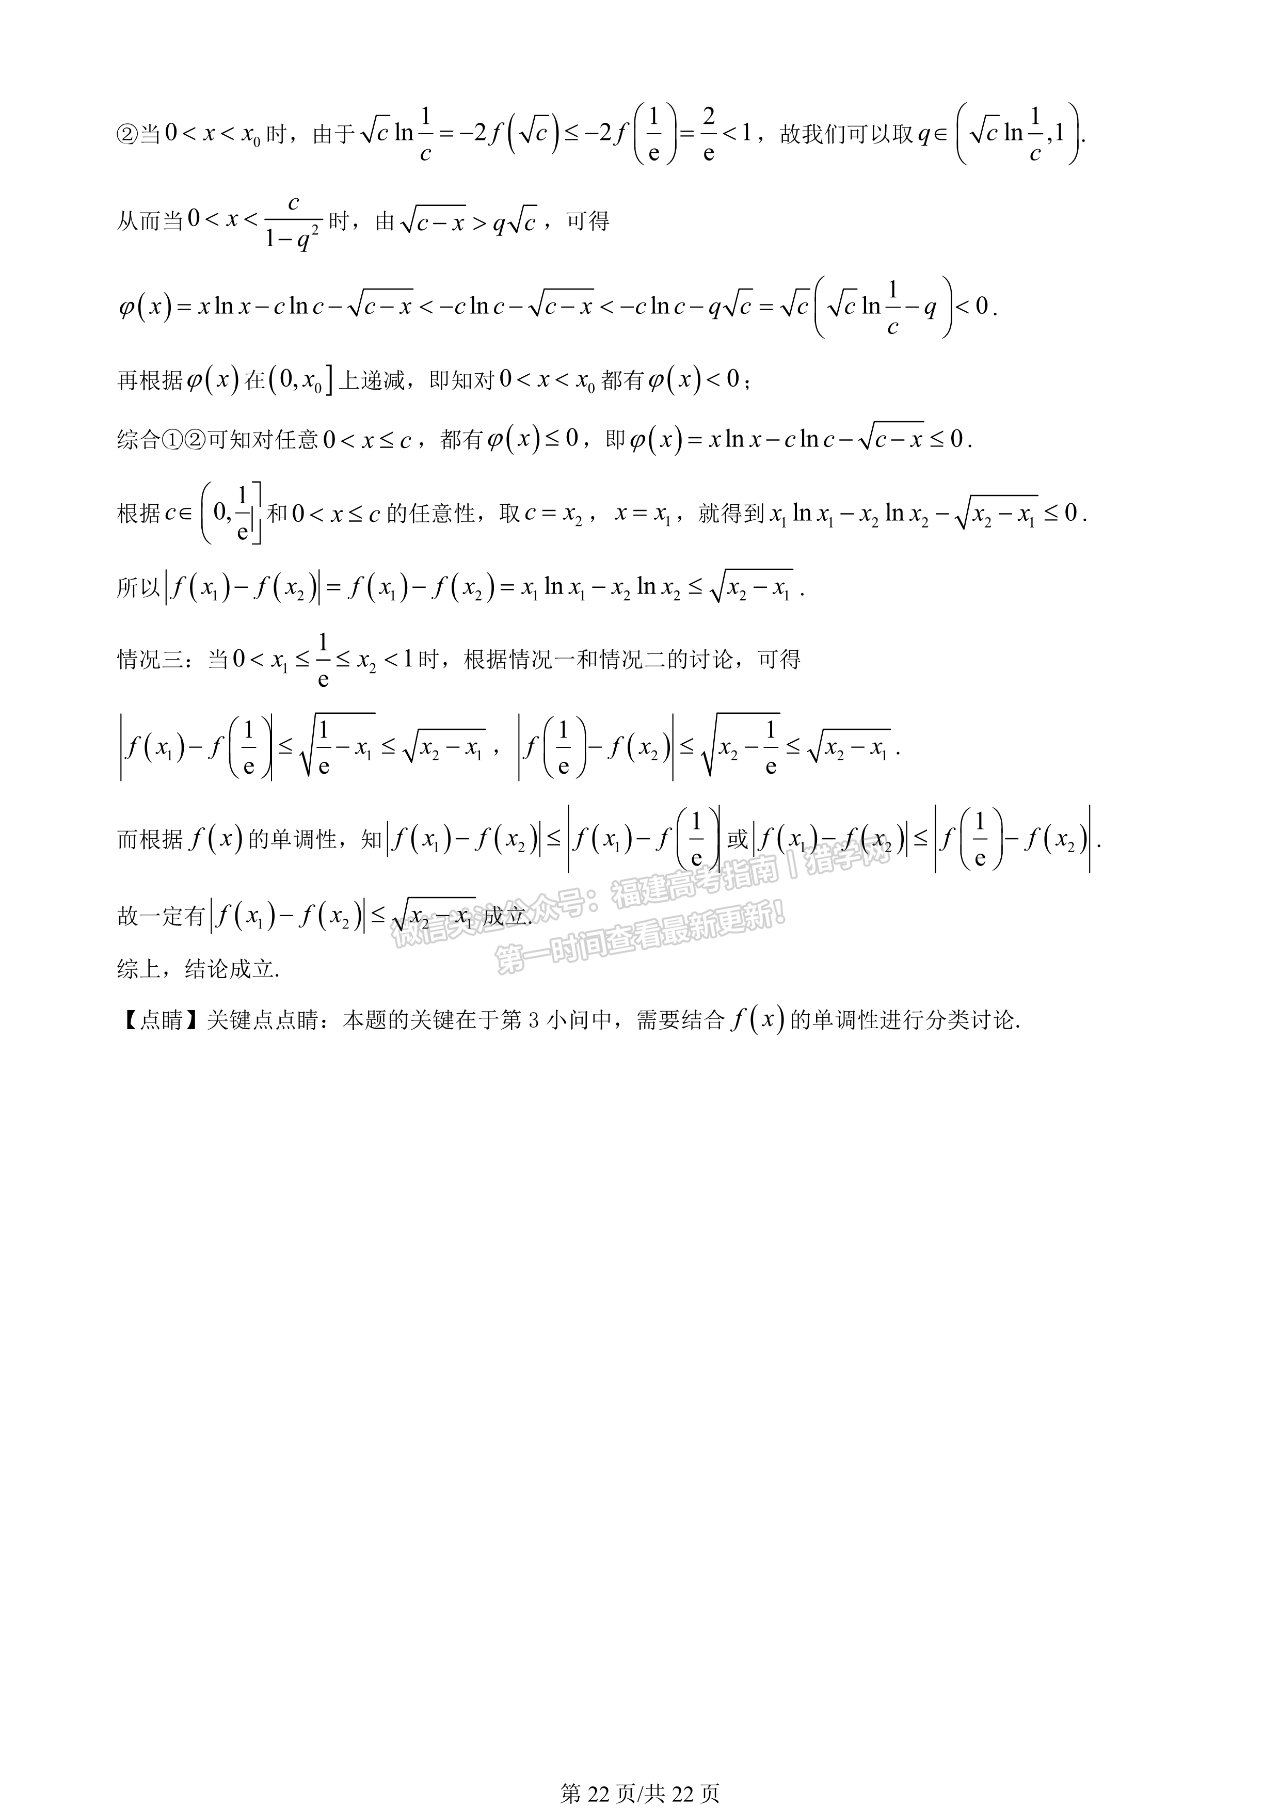 ②当0 < x < x₀时，由于√c ln 1/c = −2f(√c) ≤ −2f(1/e) = 2/e < 1，故我们可以取q∈(√c ln 1/c ,1).
从而当0 < x < c/(1−q²)时，由√(c−x) > q√c，可得
φ(x) = x ln x − c ln c − √(c−x) < −c ln c − √(c−x) < −c ln c − q√c = √c(√c ln 1/c − q) < 0.
再根据φ(x)在(0, x₀]上递减，即知对0 < x < x₀都有φ(x) < 0；
综合①②可知对任意0 < x ≤ c，都有φ(x) ≤ 0，即φ(x) = x ln x − c ln c − √(c−x) ≤ 0.
根据c∈(0, 1/e]和0 < x ≤ c的任意性，取c = x₂，x = x₁，就得到x₁ ln x₁ − x₂ ln x₂ − √(x₂ − x₁) ≤ 0.
所以|f(x₁) − f(x₂)| = f(x₁) − f(x₂) = x₁ ln x₁ − x₂ ln x₂ ≤ √(x₂ − x₁).
情况三：当0 < x₁ ≤ 1/e ≤ x₂ < 1时，根据情况一和情况二的讨论，可得
|f(x₁) − f(1/e)| ≤ √(1/e − x₁) ≤ √(x₂ − x₁)，|f(1/e) − f(x₂)| ≤ √(x₂ − 1/e) ≤ √(x₂ − x₁).
而根据f(x)的单调性，知|f(x₁) − f(x₂)| ≤ |f(x₁) − f(1/e)|或|f(x₁) − f(x₂)| ≤ |f(1/e) − f(x₂)|.
故一定有|f(x₁) − f(x₂)| ≤ √(x₂ − x₁)成立.
微信关注公众号：福建高考指南｜猎学网
第一时间查看最新更新！
综上，结论成立.
【点睛】关键点点睛：本题的关键在于第 3 小问中，需要结合f(x)的单调性进行分类讨论.
第 22 页/共 22 页